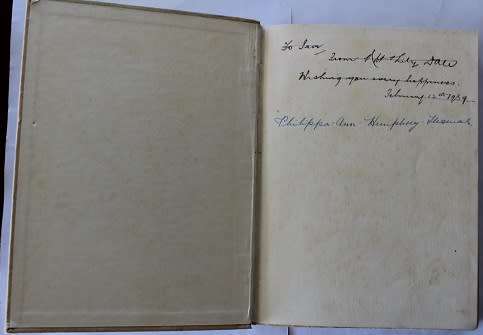 To
From & Lily Dale
Wishing you every happiness.
February 12th 1939
Philippa-Ann Humphrey Thomas.